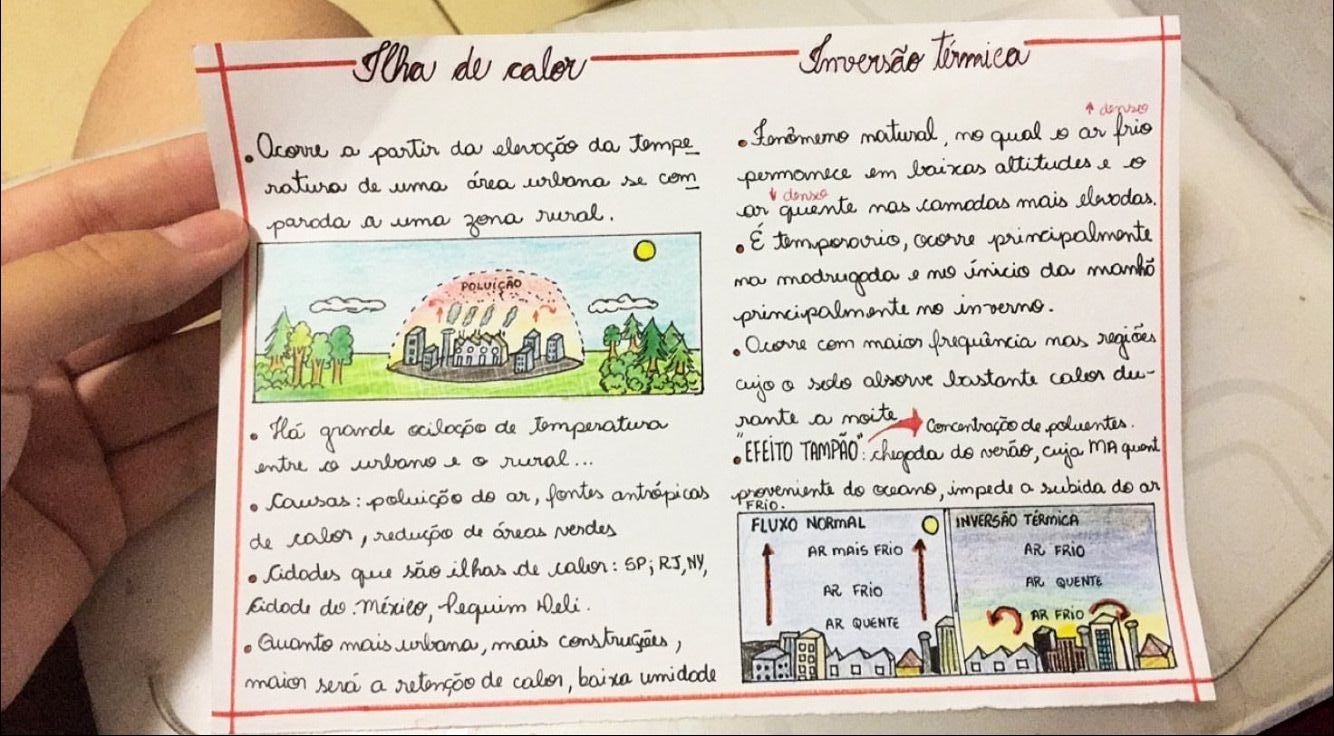 Ilha de calor
• Ocorre a partir da elevação da tempe_
ratura de uma área urbana se com_
parada a uma zona rural.
POLUIÇÃO
• Há grande ocilação de temperatura
entre o urbano e o rural...
• Causas: poluição do ar, fontes antrópicas
de calor, redução de áreas verdes
• Cidades que são ilhas de calor: SP; RJ, NY,
Cidade do México, Pequim Deli.
• Quanto mais urbana, mais construções,
maior será a retenção de calor, baixa umidade
Inversão térmica
↑ denso
• Fenômemo natural, no qual o ar frio
permanece em baixas altitudes e o
↓ denso
ar quente nas camadas mais elevadas.
• É temporario, ocorre principalmente
na madrugada e no ínicio da manhã
principalmente no inverno.
• Ocorre com maior frequência nas regiões
cujo o solo absorve bastante calor du-
rante a noite
Concentração de poluentes.
• "EFEITO TAMPÃO": chegada do verão, cuja MA quent
proveniente do oceano, impede a subida do ar
FRIO.
FLUXO NORMAL
AR MAIS FRIO
AR FRIO
AR QUENTE
INVERSÃO TÉRMICA
AR FRIO
AR QUENTE
AR FRIO